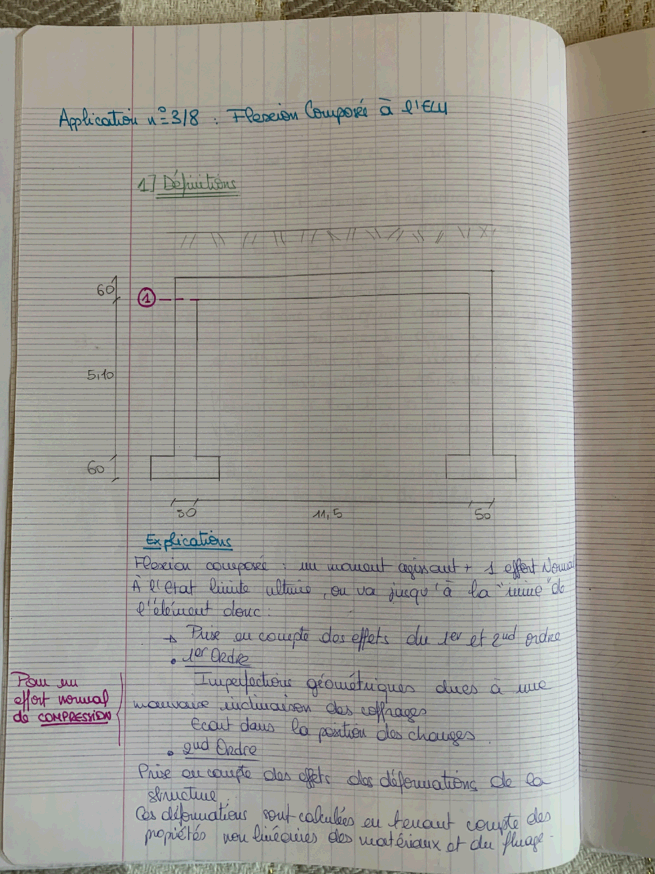 Application n°3/8 : Flexion Composé à l'ELU
1] Définitions
60
1
5,10
60
50
11,5
50
Explications
Flexion composé : un moment agissant + 1 effort Normal
À l'état limite ultime, on va jusqu'à la "ruine" de
l'élément donc :
→ Prise en compte des effets du 1er et 2nd ordre
• 1er Ordre
Pour un
effort normal
de COMPRESSION
Imperfections géométriques dues à une
mauvaise inclinaison des coffrages
Ecart dans la position des charges.
• 2nd Ordre
Prise en compte des effets des déformations de la
structure
Ces déformations sont calculées en tenant compte des
propiétés non linéaires des matériaux et du fluage.